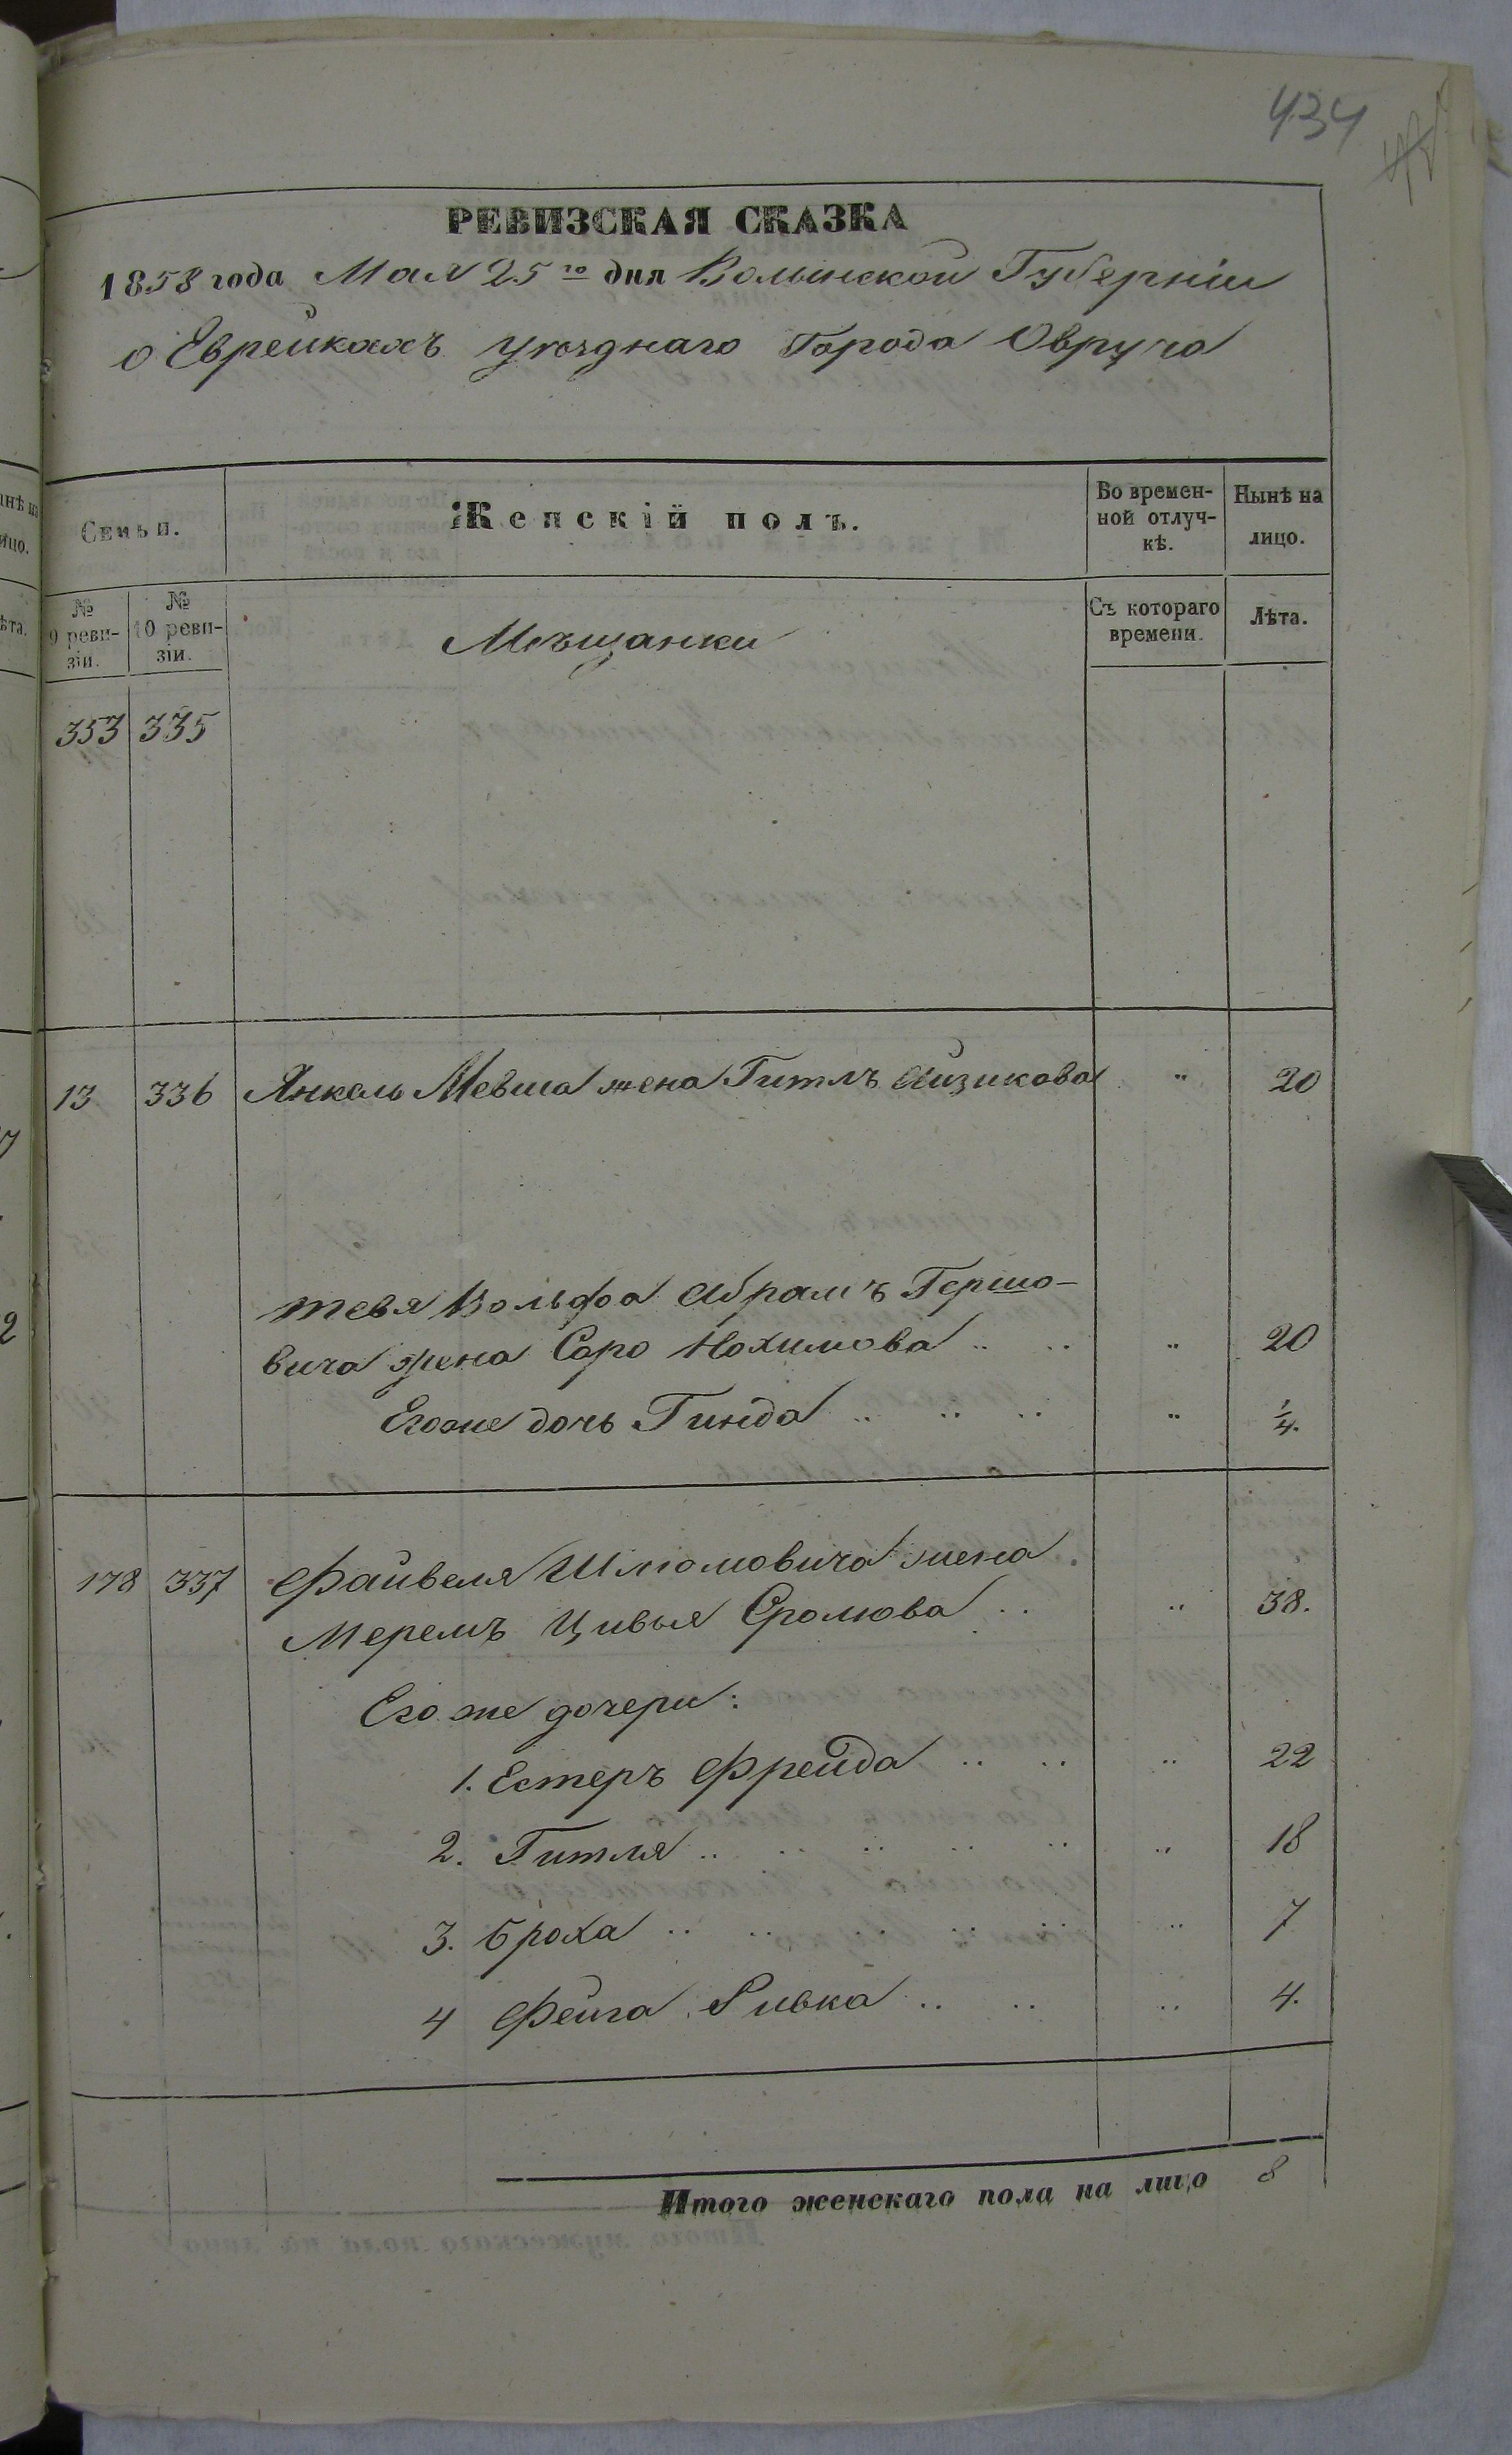 434
РЕВИЗСКАЯ СКАЗКА
1858 года Мая 25го дня Волынской Губерніи
о Еврейкахъ уезднаго Города Овруча
Семьи.
Женскій полъ.
Во времен-
ной отлуч-
кѣ.
Нынѣ на
лицо.
№
9 реви-
зіи.
№
10 реви-
зіи.
Мѣщанки
Съ котораго
времени.
Лѣта.
353 335
13 336 Янкель Мевша жена Гитлъ Айзикова " 20
Тевя Вольфа Абрамъ Гершо-
вича жена Сара Нохимова .. .. " 20
Его же дочь Гинда .. .. .. " 1/4.
178 337 Файвеля Шлиомовича жена
Меремъ Цивья Сролиова .. " 38.
Его же дочери:
1. Естеръ Фрейда .. .. " 22
2. Гитля .. .. .. .. .. " 18
3. Броха .. .. .. .. .. " 7
4 Фейга Ривка .. .. " 4.
Итого женскаго пола на лицо 8